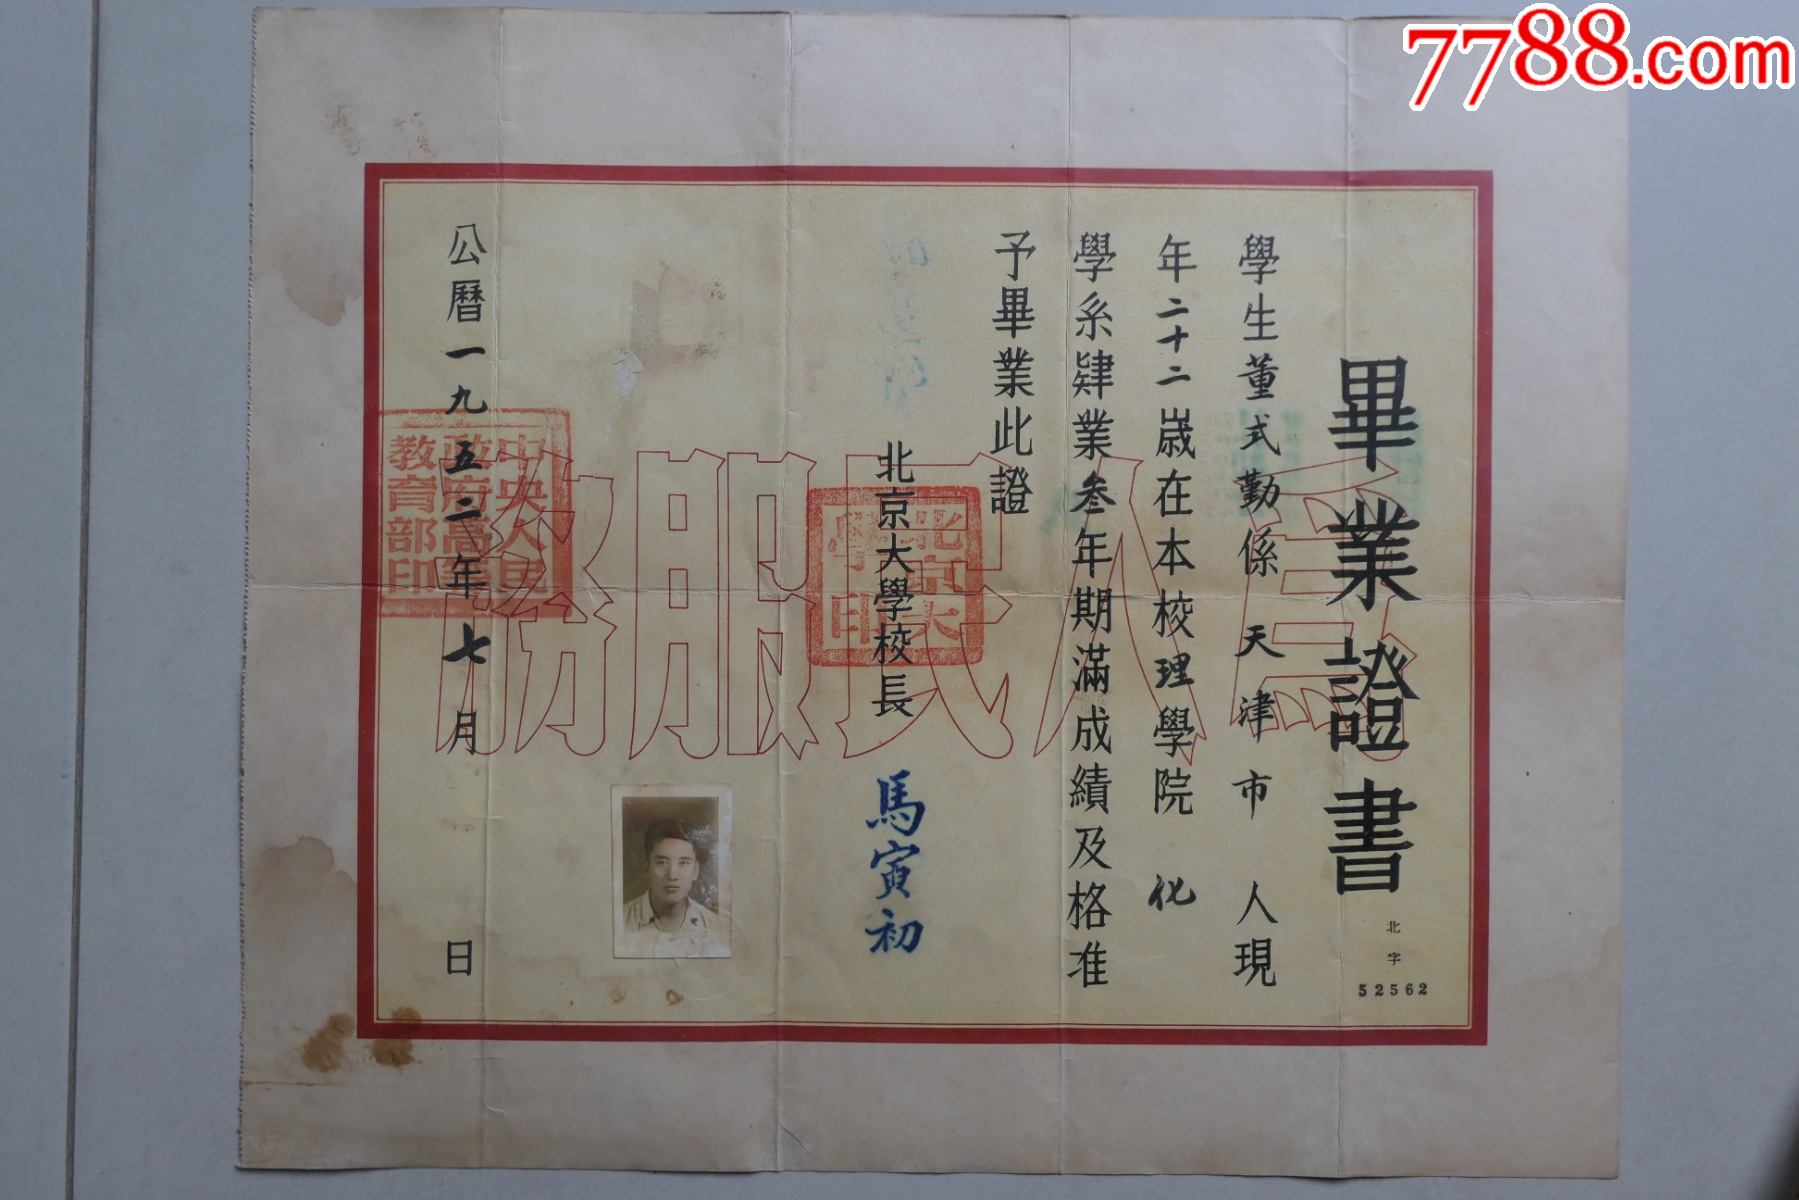 7788.com
畢業證書
北字
52562
學生董式勤係天津市人現
年二十二歲在本校理學院化
學系肄業叁年期滿成績及格准
予畢業此證
北京大學校長馬寅初
北京大學印
公曆一九五二年七月日
中央人民政府高等教育部印
為人民服務